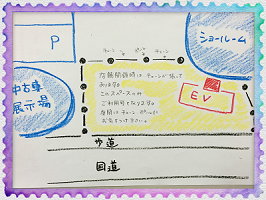 P
チェーン ポール チェーン
ショールーム
店舗閉店時はチェーンが張って
あります。
このスペースのみ
ご利用可となります。
夜間はチェーン、ポールに
お気をつけ下さい。
EV
中古車
展示場
歩道
国道